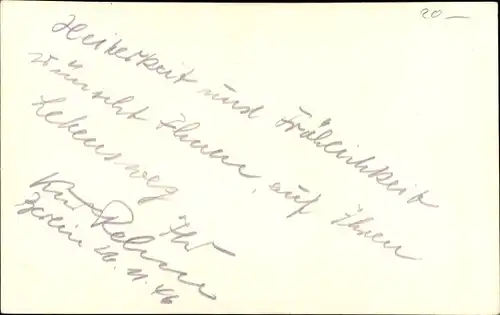 20 —
Heiterkeit und Fröhlichkeit
wünscht Ihnen, auf Ihren
Lebensweg Ihr
Berlin 26.11.46